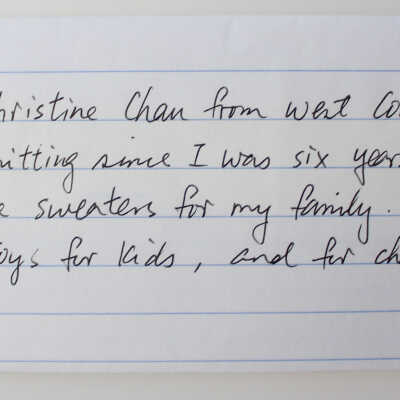 hristine Chan from west Co
nitting since I was six years
e sweaters for my family.
oys for kids, and for ch